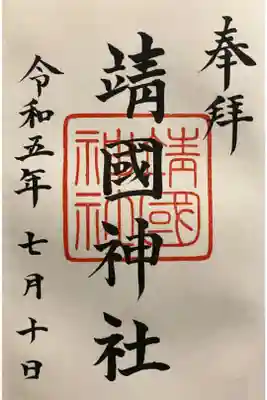 奉拝
靖國神社
靖國神社
令和五年 七月十日